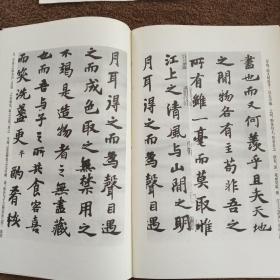 盡也而又何羨乎且夫天地
之間物各有主苟非吾之
所有雖一毫而莫取惟
江上之清風與山間之明
月耳得之而為聲目遇
之而成色取之無禁用之
不竭是造物者之無盡藏
也而吾与子之所共食客喜
而笑洗盞更平酌肴核